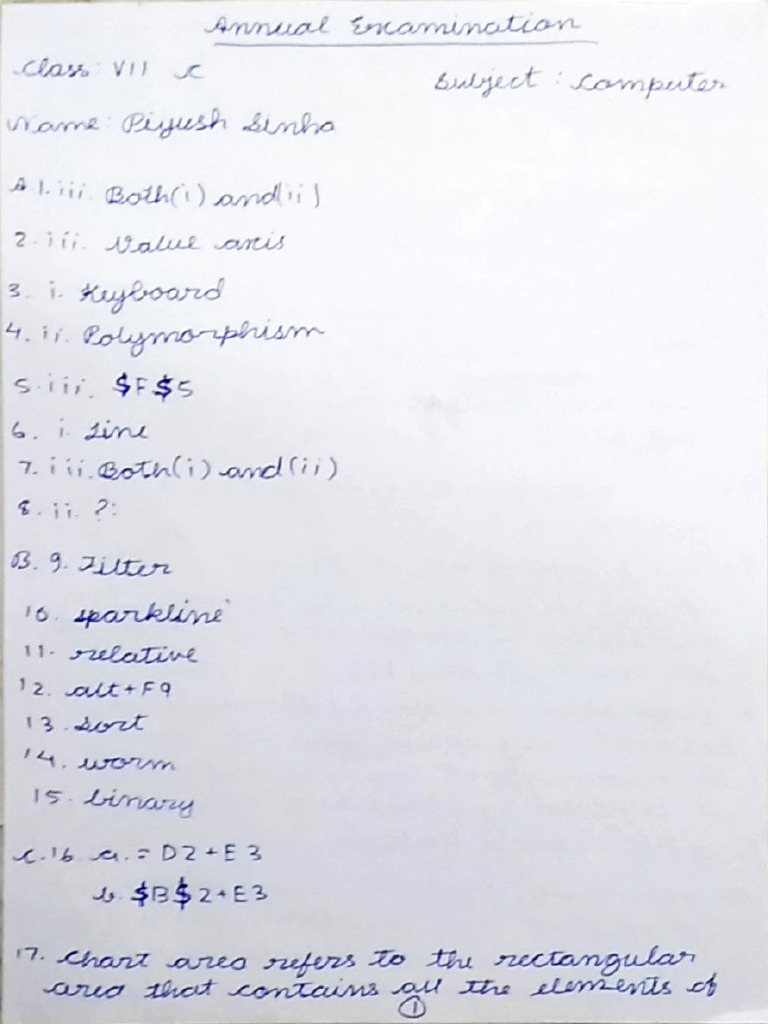 Annual Examination
Class: VII C
Subject: Computer
Name: Piyush Sinha
A 1. iii. Both(i) and(ii)
2. iii. Value axis
3. i. Keyboard
4. ii. Polymorphism
5. iii. $F$5
6. i. Line
7. iii. Both(i) and(ii)
8. ii. ?:
B. 9. Filter
10. sparkline
11. relative
12. alt+F9
13. sort
14. worm
15. binary
C. 16. a. = D2+E3
b. $B$2+E3
17. Chart area refers to the rectangular
area that contains all the elements of
1